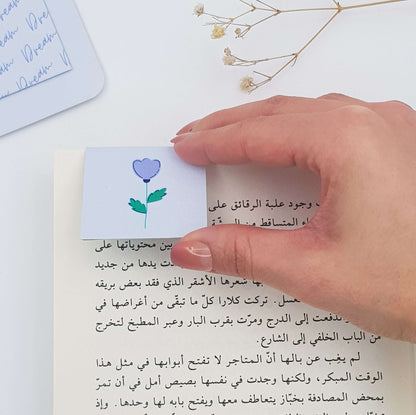 Dream
Dream
Dream Dream
Dream
وجود علبة الرقائق على
المتساقط من
بين محتوياتها على
يدها من جديد
شعرها الأشقر الذي فقد بعض بريقه
تركت كلارا كلّ ما تبقّى من أغراضها في
إلى الدرج ومرّت بقرب البار وعبر المطبخ لتخرج
من الباب الخلفي إلى الشارع.
لم يغِب عن بالها أنّ المتاجر لا تفتح أبوابها في مثل هذا
الوقت المبكر، ولكنها وجدت في نفسها بصيص أمل في أن تمرّ
بمحض المصادفة بخبّاز يتعاطف معها ويفتح بابه لها وحدها. وإذ